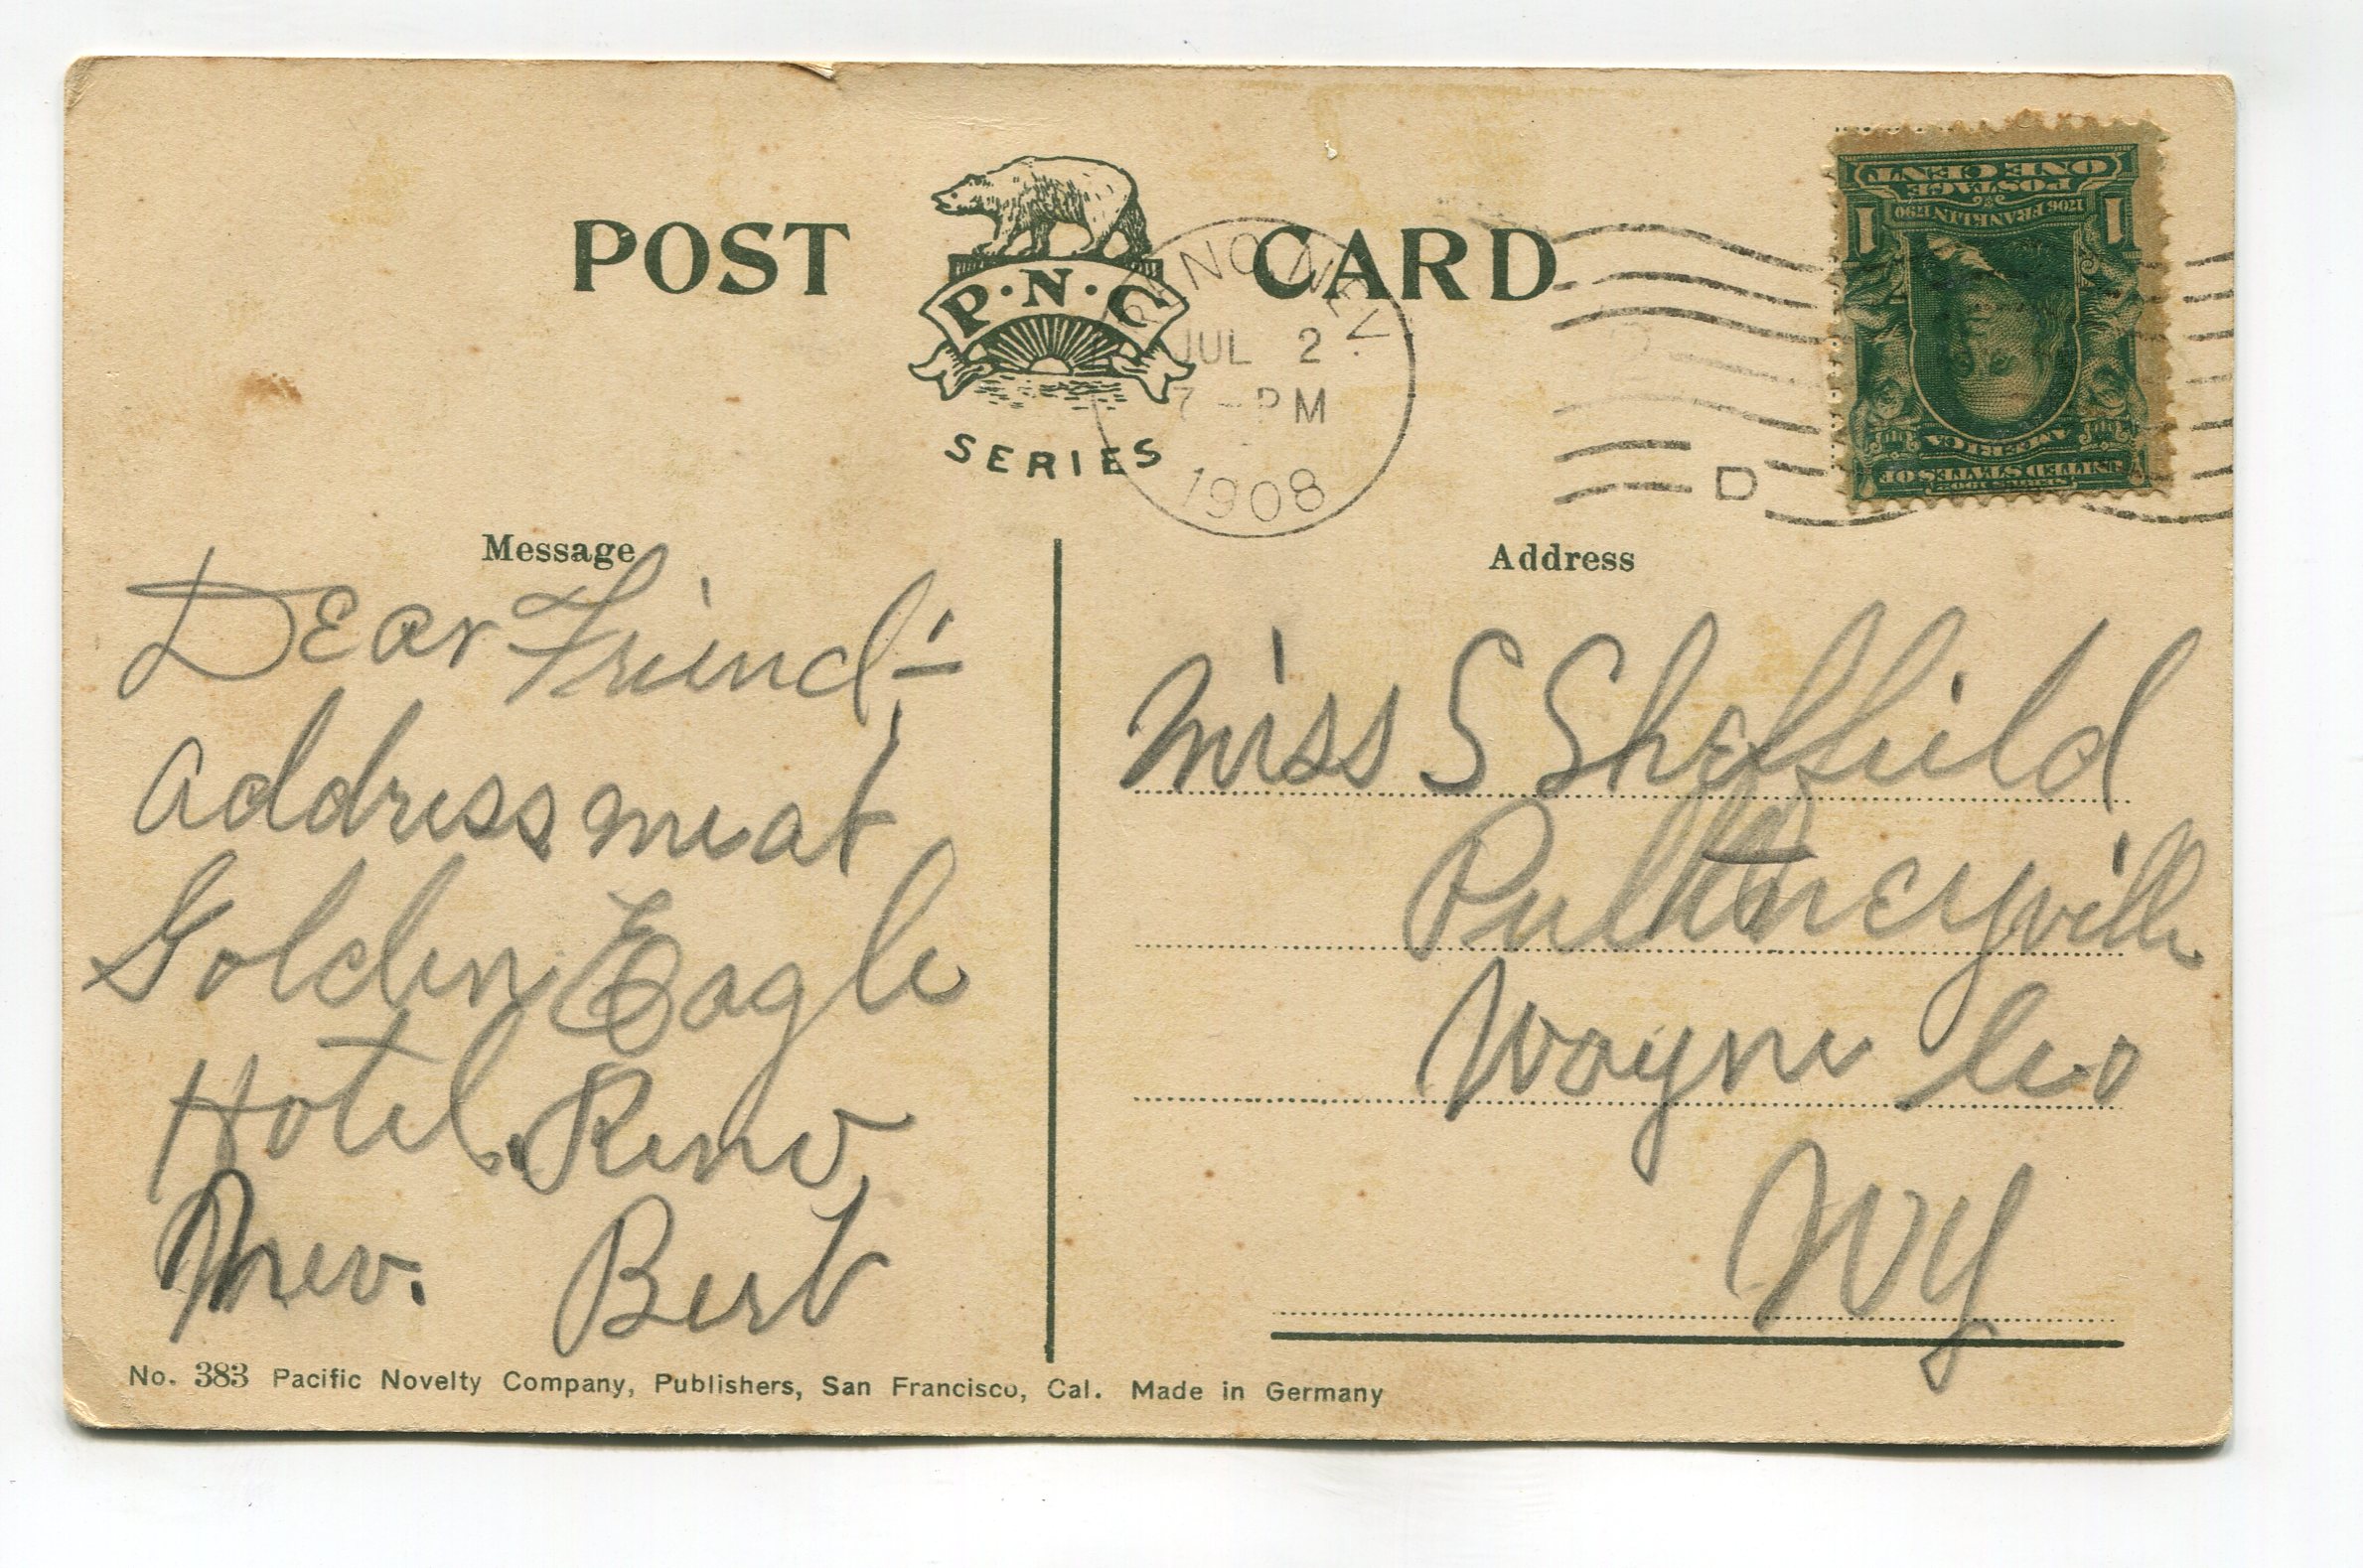 POST CARD
P·N·C
SERIES
RENO, NEV.
JUL 2
7-PM
1908
D
UNITED STATES OF
AMERICA
1706 FRANKLIN 1790
POSTAGE
1 ONE CENT 1
Message
Dear Friend:-
Address me at
Golden Eagle
Hotel. Reno,
Nev. Bert
Address
Miss S Sheffield
Pultneyville
Wayne Co
NY
No. 383 Pacific Novelty Company, Publishers, San Francisco, Cal. Made in Germany